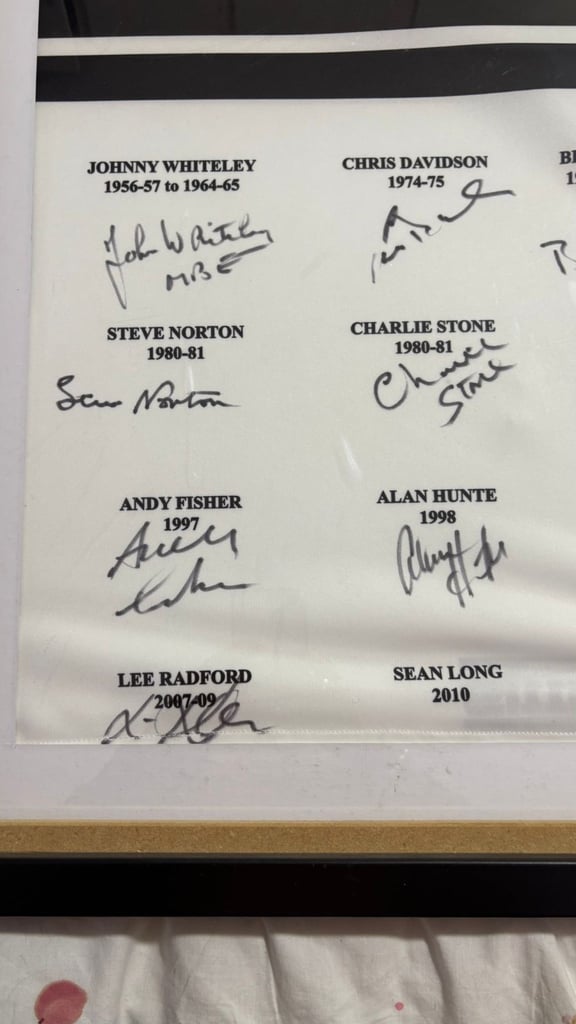 JOHNNY WHITELEY
1956-57 to 1964-65
John Whiteley
MBE
CHRIS DAVIDSON
1974-75
STEVE NORTON
1980-81
Norton
CHARLIE STONE
1980-81
Charlie
Stone
ANDY FISHER
1997
ALAN HUNTE
1998
LEE RADFORD
2007-09
SEAN LONG
2010